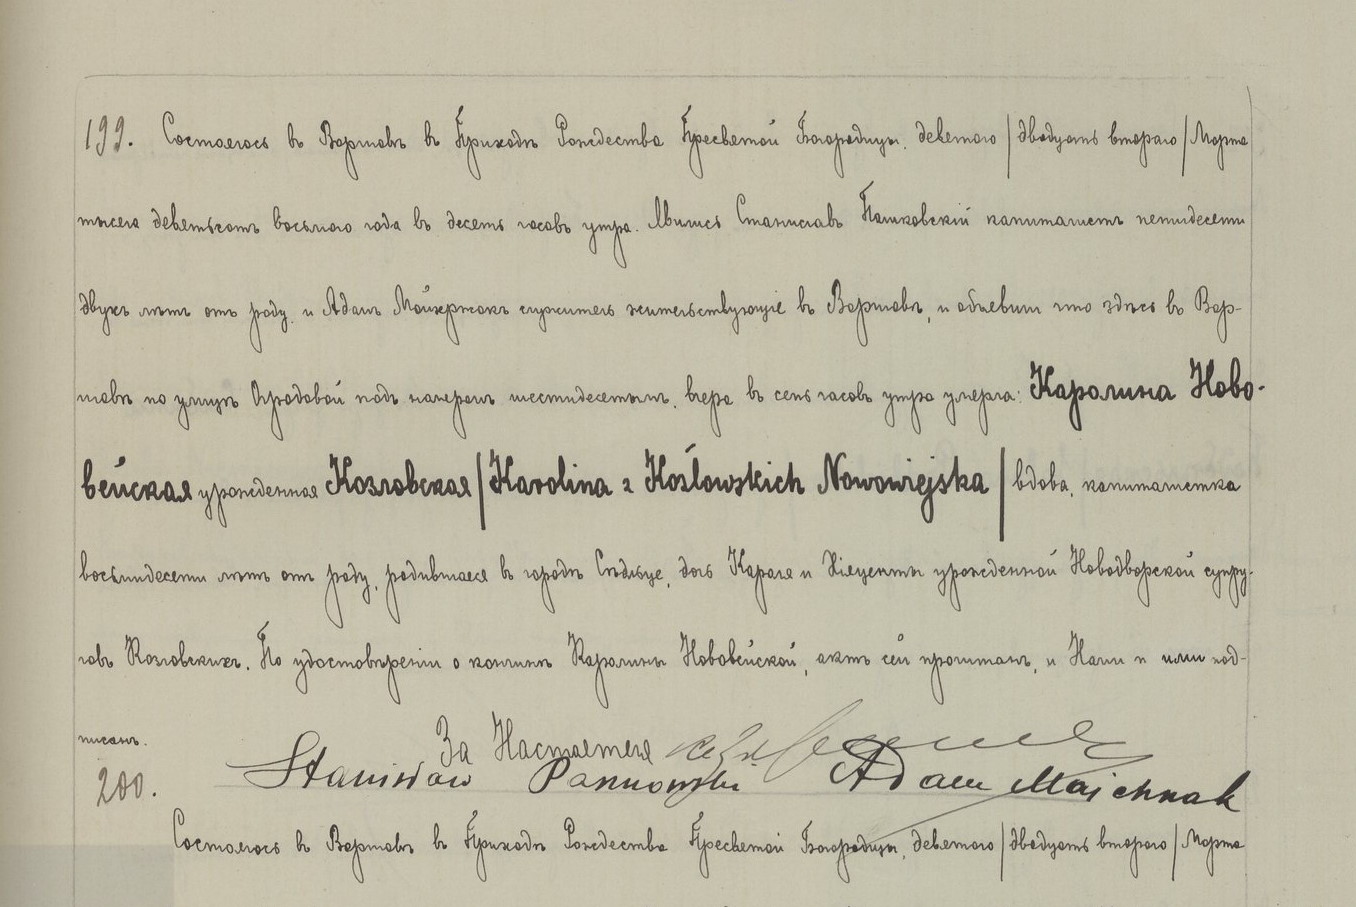 199. Состоялось въ Варшавѣ въ Приходѣ Рождества Пресвятой Богородицы, девятого / двадцать втораго / Марта
тысяча девятьсотъ восьмого года въ десять часовъ утра. Явились Станиславъ Пашковскій капиталистъ пятидесяти
двухъ лѣтъ отъ роду, и Адамъ служитель жительствующіе въ Варшавѣ, и объявили что здѣсь въ Вар-
шавѣ по улицѣ Огродовой подъ номеромъ шестидесятымъ, вчера въ семь часовъ утра умерла: Каролина Ново-
вейская урожденная Козловская / Karolina z Kozłowskich Nowowiejska / вдова, капиталистка
восьмидесяти лѣтъ отъ роду, родившаяся въ городѣ Сѣдльце, дочь Кароля и урожденной Новодворской супру-
говъ Козловскихъ. По удостовѣреніи о кончинѣ Каролины Нововейской, актъ сей прочитанъ, и Нами и ими под-
писанъ.
За Настоятеля
Stanisław Adam
200.
Состоялось въ Варшавѣ въ Приходѣ Рождества Пресвятой Богородицы, девятого / двадцать втораго / Марта